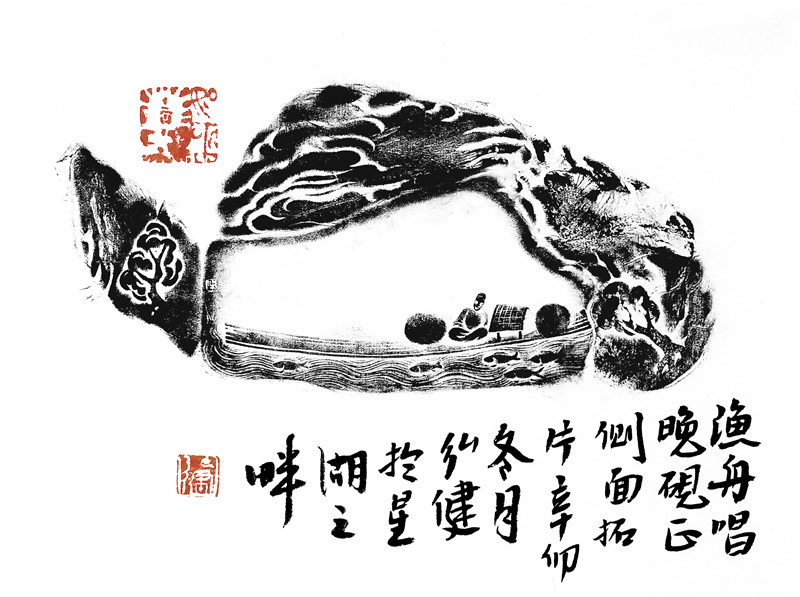 渔舟唱
晚砚正
侧面拓
片辛卯
冬月
弘健
於星
湖之
畔